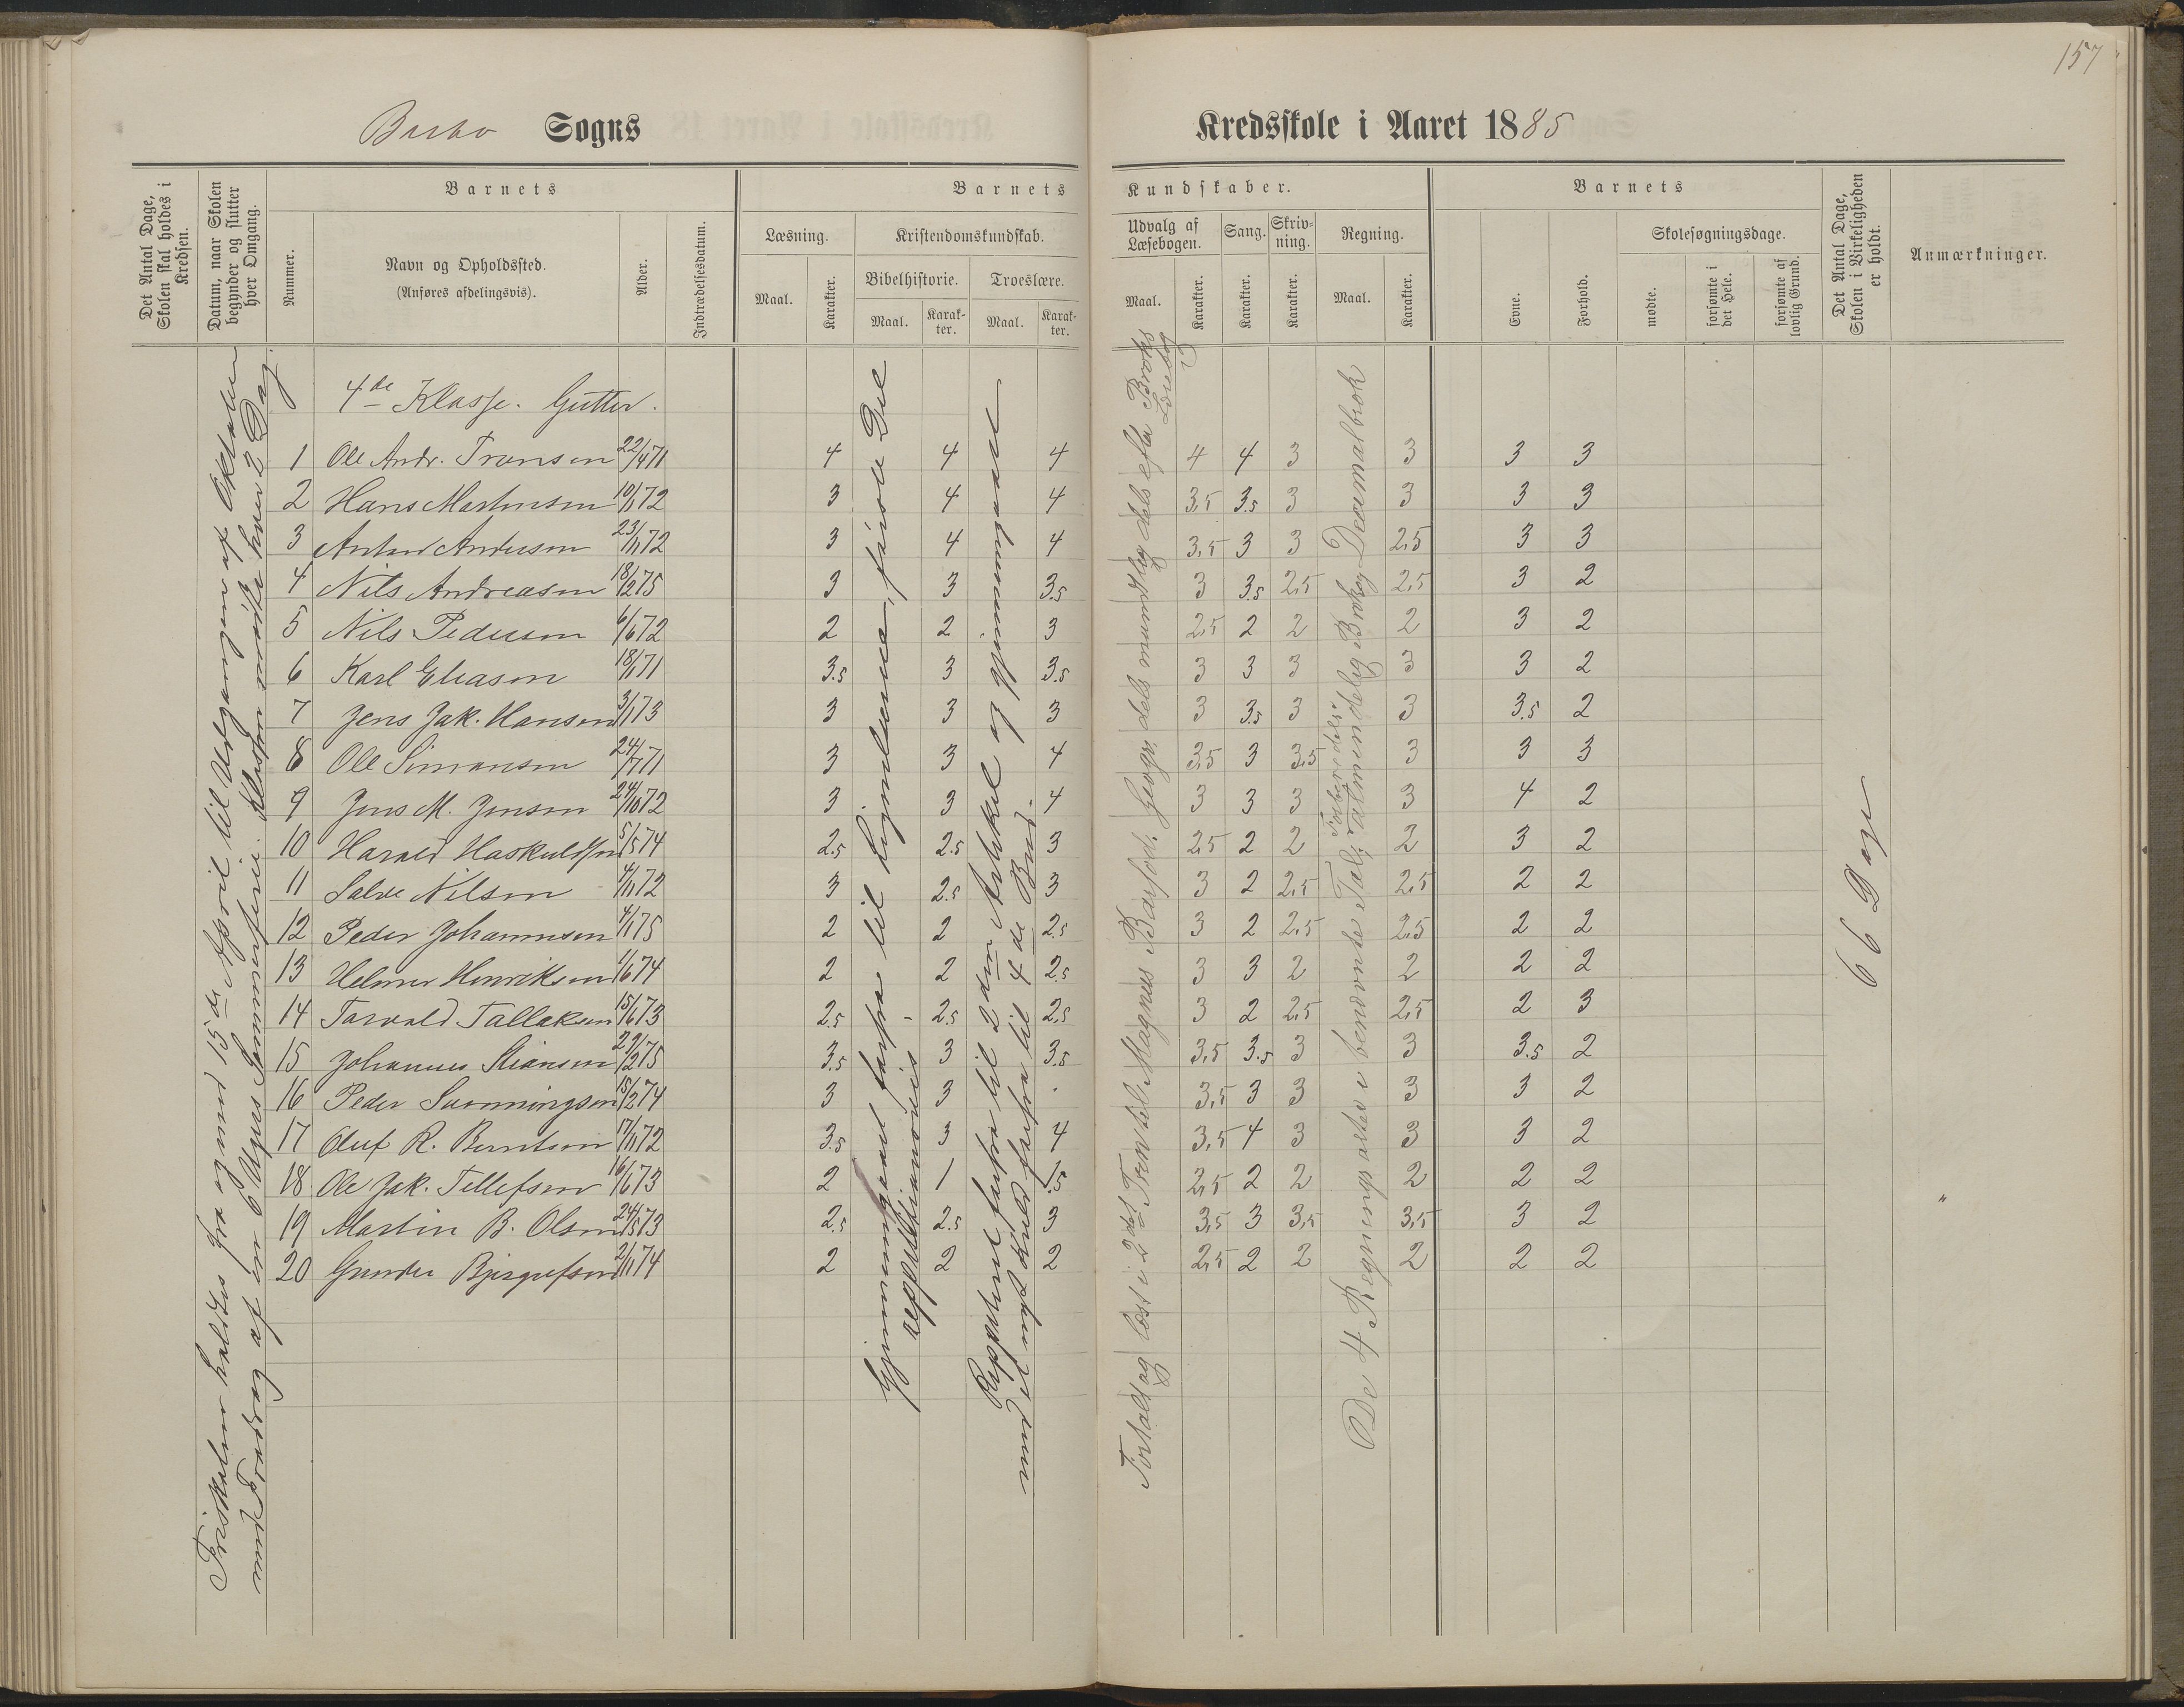 157
Barbo Sogns
Kredsskole i Aaret 1885
Det Antal Dage, Skolen skal holdes i Kredsen.
Datum, naar Skolen begynder og slutter hver Omgang.
Barnets
Nummer.
Navn og Opholdssted.
(Anføres afdelingsvis).
Alder.
Indtrædelsesdatum.
Barnets
Læsning.
Maal.
Karakter.
Kristendomskundskab.
Bibelhistorie.
Maal.
Karakter.
Troeslære.
Maal.
Karakter.
Kundskaber.
Udvalg af Læsebogen.
Maal.
Karakter.
Sang.
Karakter.
Skrivning.
Karakter.
Regning.
Maal.
Karakter.
Barnets
Evne.
Forhold.
Skolesøgningsdage.
mødte.
forsømte i det Hele.
forsømte af lovlig Grund.
Det Antal Dage, Skolen i Virkeligheden er holdt.
Anmærkninger.
4de Klasse. Gutter.
1 Ole Andr. Transen 22/4 71 4 4 4 4 4 3 3 3 3
2 Hans Martinsen 10/1 72 3 4 4 3,5 3.5 3 3 3 3
3 Anton Andersen 23/11 72 3 4 4 3,5 3 3 2,5 3 3
4 Nils Andreasen 18/2 75 3 3 3.5 3 3.5 2,5 2,5 3 2
5 Nils Pedersen 6/6 72 2 2 3 2,5 2 2 2 3 2
6 Karl Eliasen 18/1 71 3.5 3 3.5 3 3 3 3 3 2
7 Jens Jak. Hansen 3/1 73 3 3 3 3 3.5 3 3 3.5 2
8 Ole Simonsen 24/7 71 3 3 4 3,5 3 3,5 3 3 3
9 Jens M. Jensen 24/10 72 3 3 4 3 3 3 3 4 2
10 Harald Haskuldsen 5/5 74 2.5 2.5 3 2,5 2 2 2 3 2
11 Salve Nilsen 4/11 72 3 2.5 3 3 2 2,5 2,5 2 2
12 Peder Johannesen 4/1 75 2 2 2.5 3 2 2,5 2,5 2 2
13 Helmer Henriksen 1/6 74 2 2 2.5 3 3 2 2 2 2
14 Torvald Tallaksen 15/6 73 2.5 2.5 2.5 3 2 2,5 2,5 2 3
15 Johannes Stiansen 29/2 75 3.5 3 3.5 3,5 3.5 3 3 3.5 2
16 Peder Svenningsen 15/2 74 3 3 . 3,5 3 3 3 3 2
17 Oluf R. Berntsen 17/11 72 3.5 3 4 3,5 4 3 3 3 2
18 Ole Jak. Tellefsen 16/6 73 2 1 1.5 2,5 2 2 2 2 2
19 Martin B. Olsen 24/5 73 2.5 2.5 3 3,5 3 3,5 3,5 3 2
20 Gunder Bjergufsen 2/11 74 2 2 2 2,5 2 2 2 2 2
Friskolen holdtes fra og med 15de April til Udgangen af Oktober
med Fradrag af en 6 Ugers Sommerferie. Klassen mødte hver 2 Dag.
Gjennemgaaet forfra til Lignelserne, første Del
reppetitionsvis
Reppetert forfra til 2den Artikel og gjennemgaaet
med et nyt Kuld forfra til 4de Bud.
Fortalt og læst i 2det Trin til Magnus Barfod. Geogr. dels mundtlig dels efter Broks Lærebog
De 4 Regningsarter i benævnte Tal; Forberedelse almindelig Brøk og Decimalbrøk
66 Dage
"